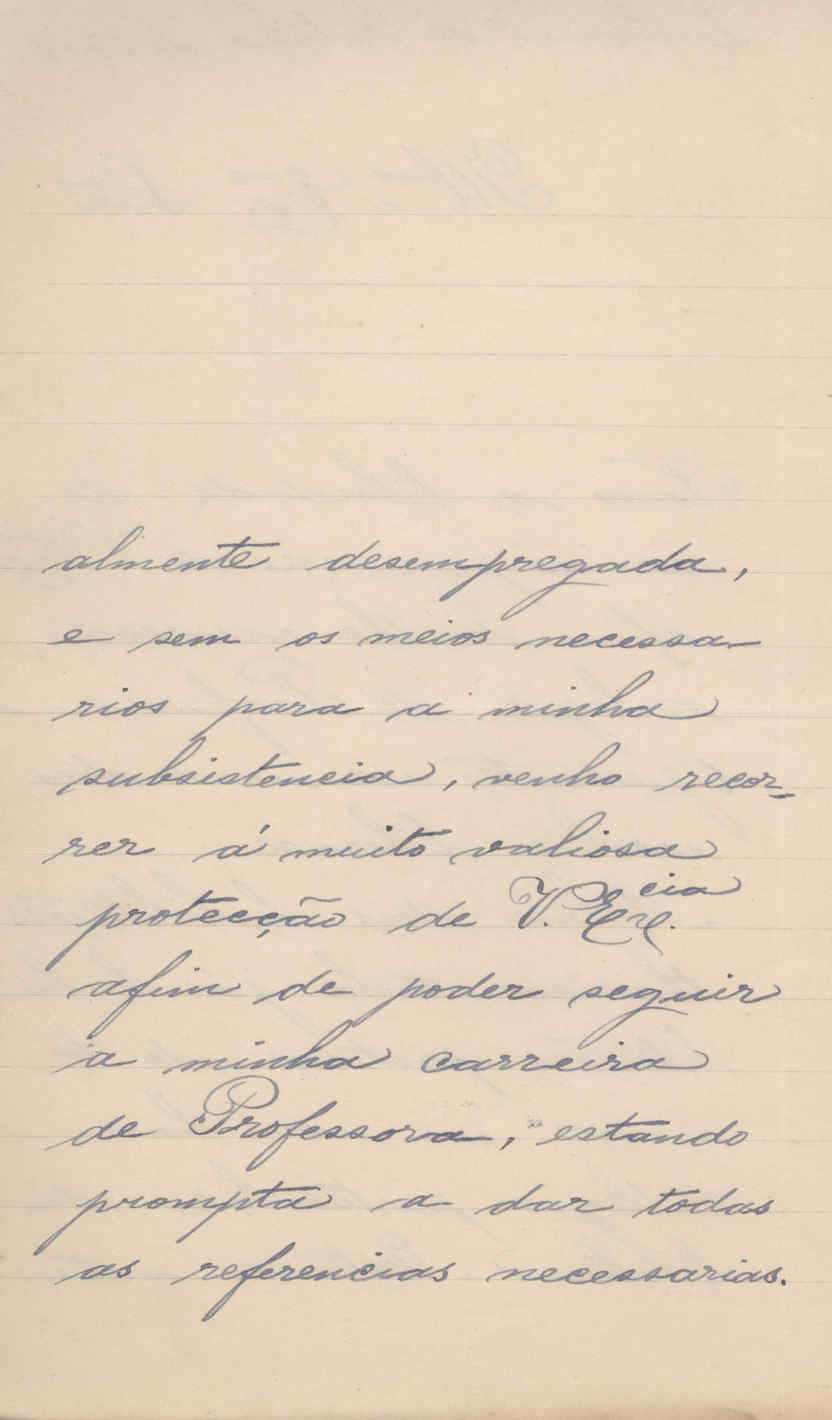 almente desempregada,
e sem os meios necessa-
rios para a minha
subsistencia, venho recor-
rer á muito valiosa
protecção de V. Excia.
afim de poder seguir
a minha carreira
de Professora, estando
prompta a dar todas
as referencias necessarias.